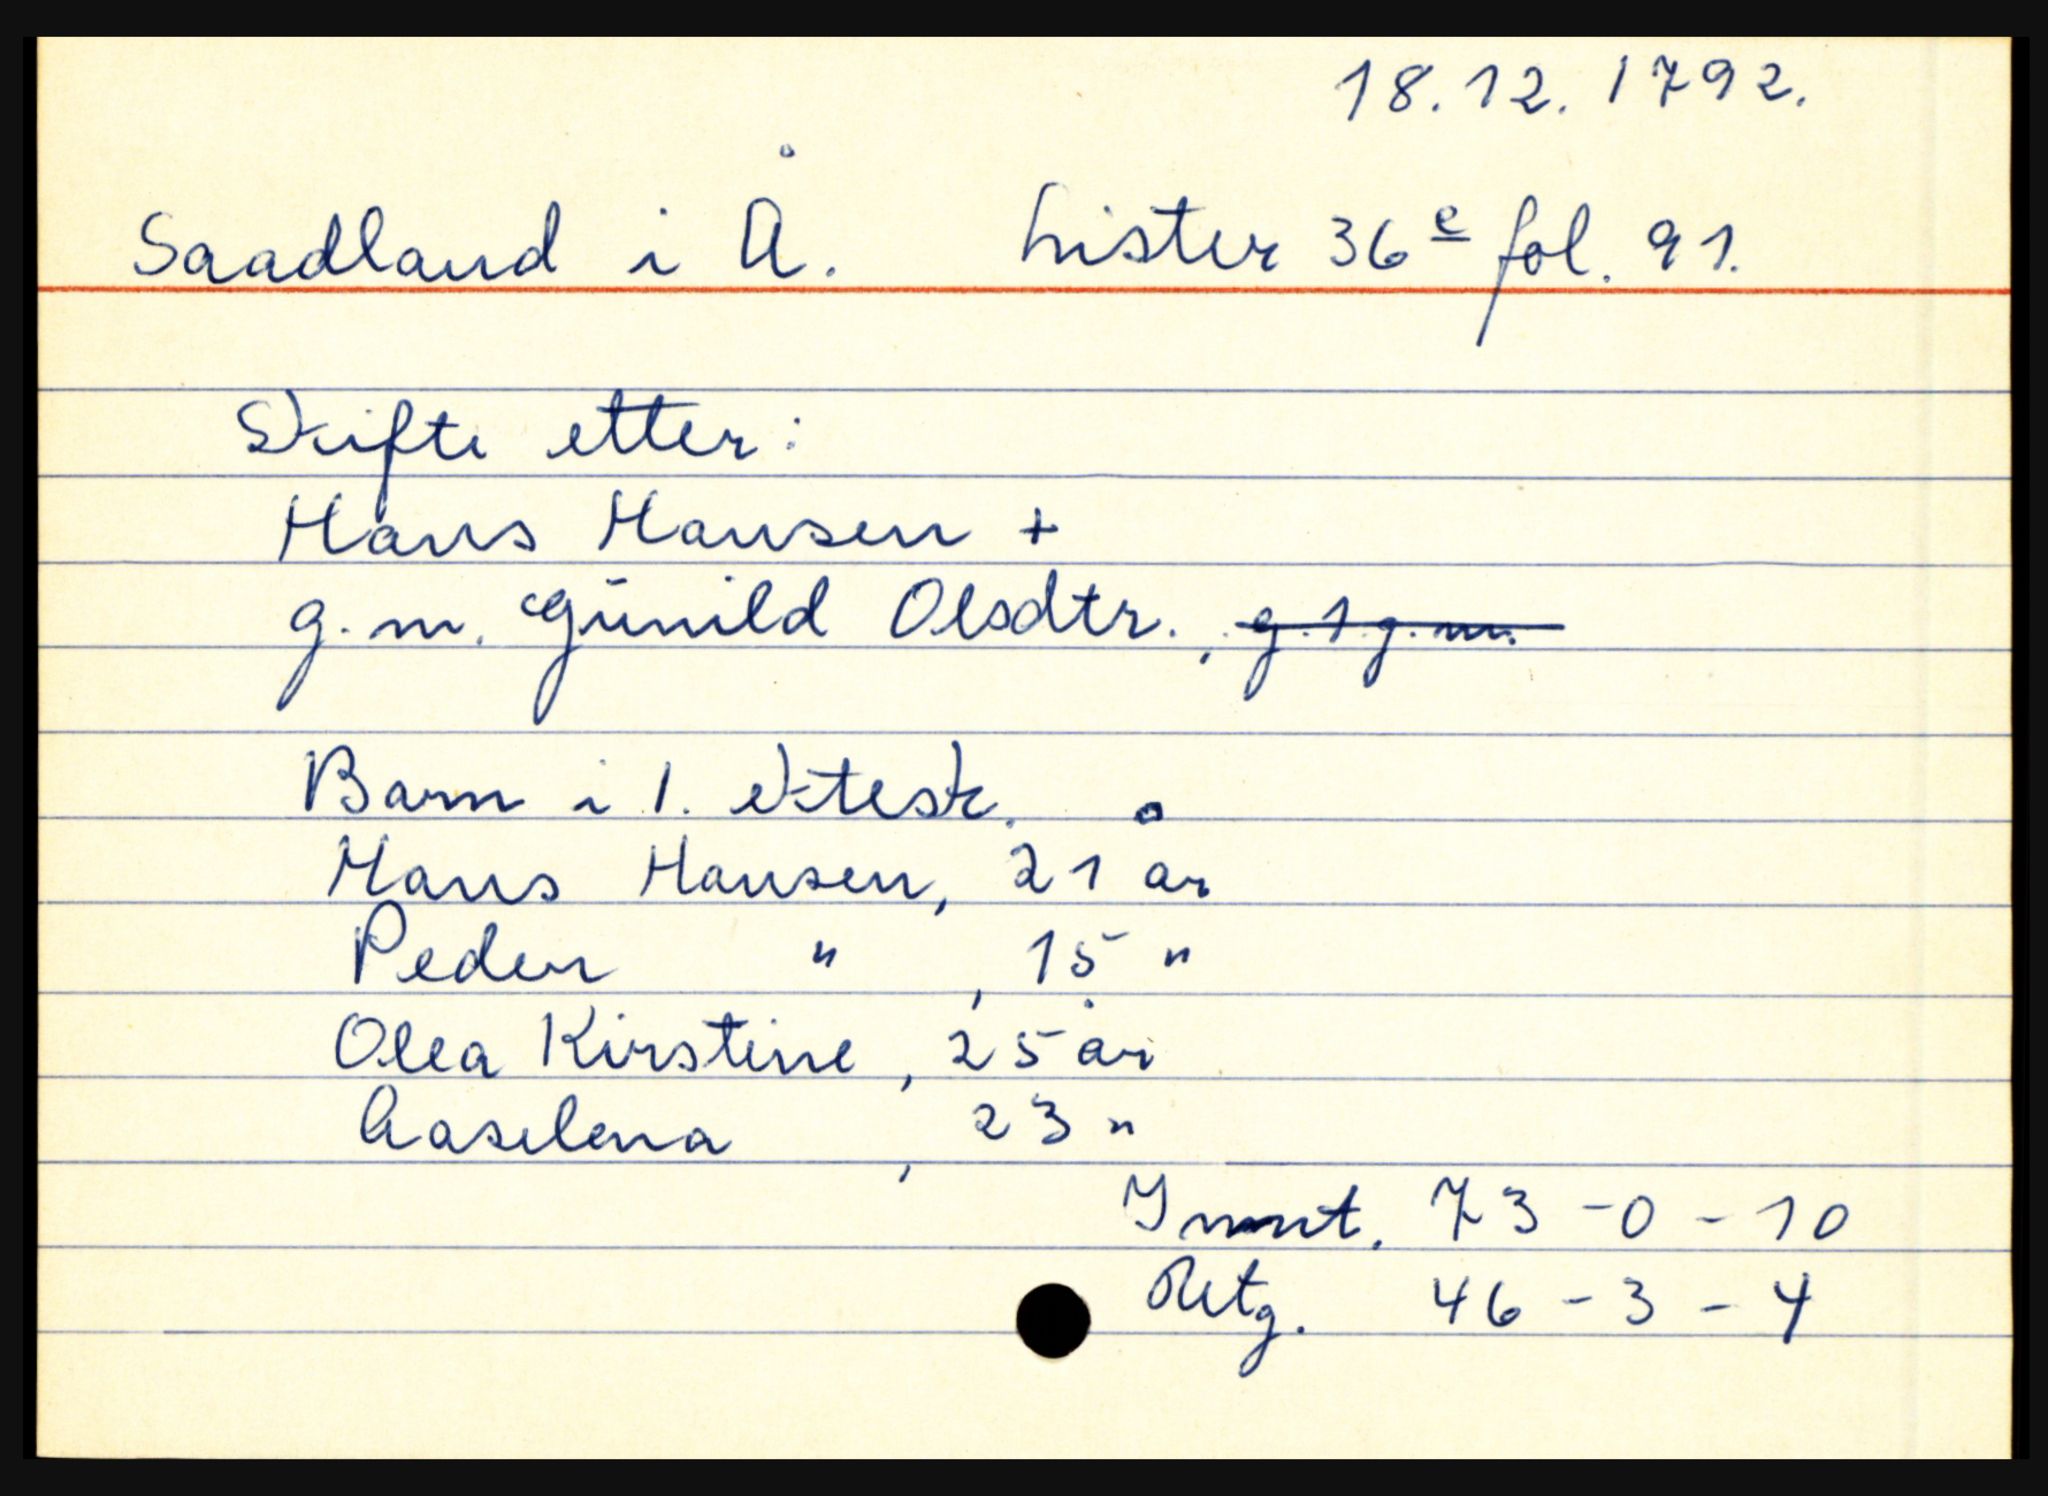 18.12.1792.
Saadland i Å. Lister 36 e fol. 91.
Skifte etter:
Hans Hansen +
g.m. Gunild Olsdtr., g.1.g.m.
Barn i 1. ektesk.
Hans Hansen, 21 år
Peder " , 15 "
Olea Kirstine, 25 år
Aaselena , 23 "
Innt. 73-0-10
Retg. 46-3-4